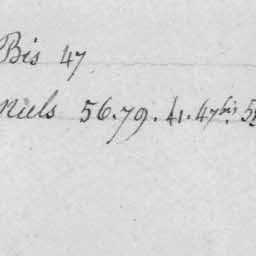 Bis 47
Niels 56.79.41.47bis.